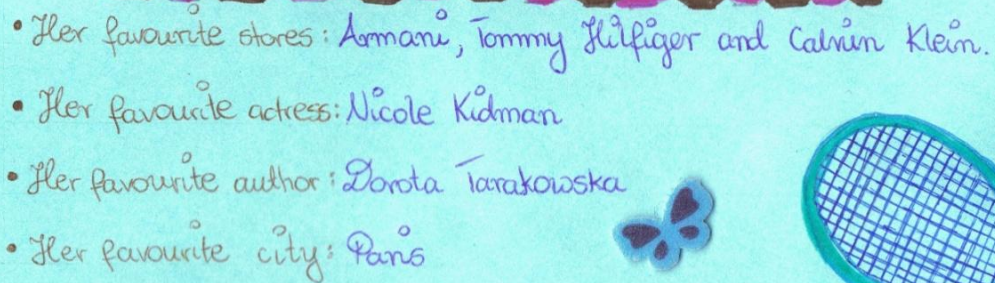 • Her favourite stores: Armani, Tommy Hilfiger and Calvin Klein.
• Her favourite actress: Nicole Kidman
• Her favourite author: Dorota Tarakowska
• Her favourite city: Paris